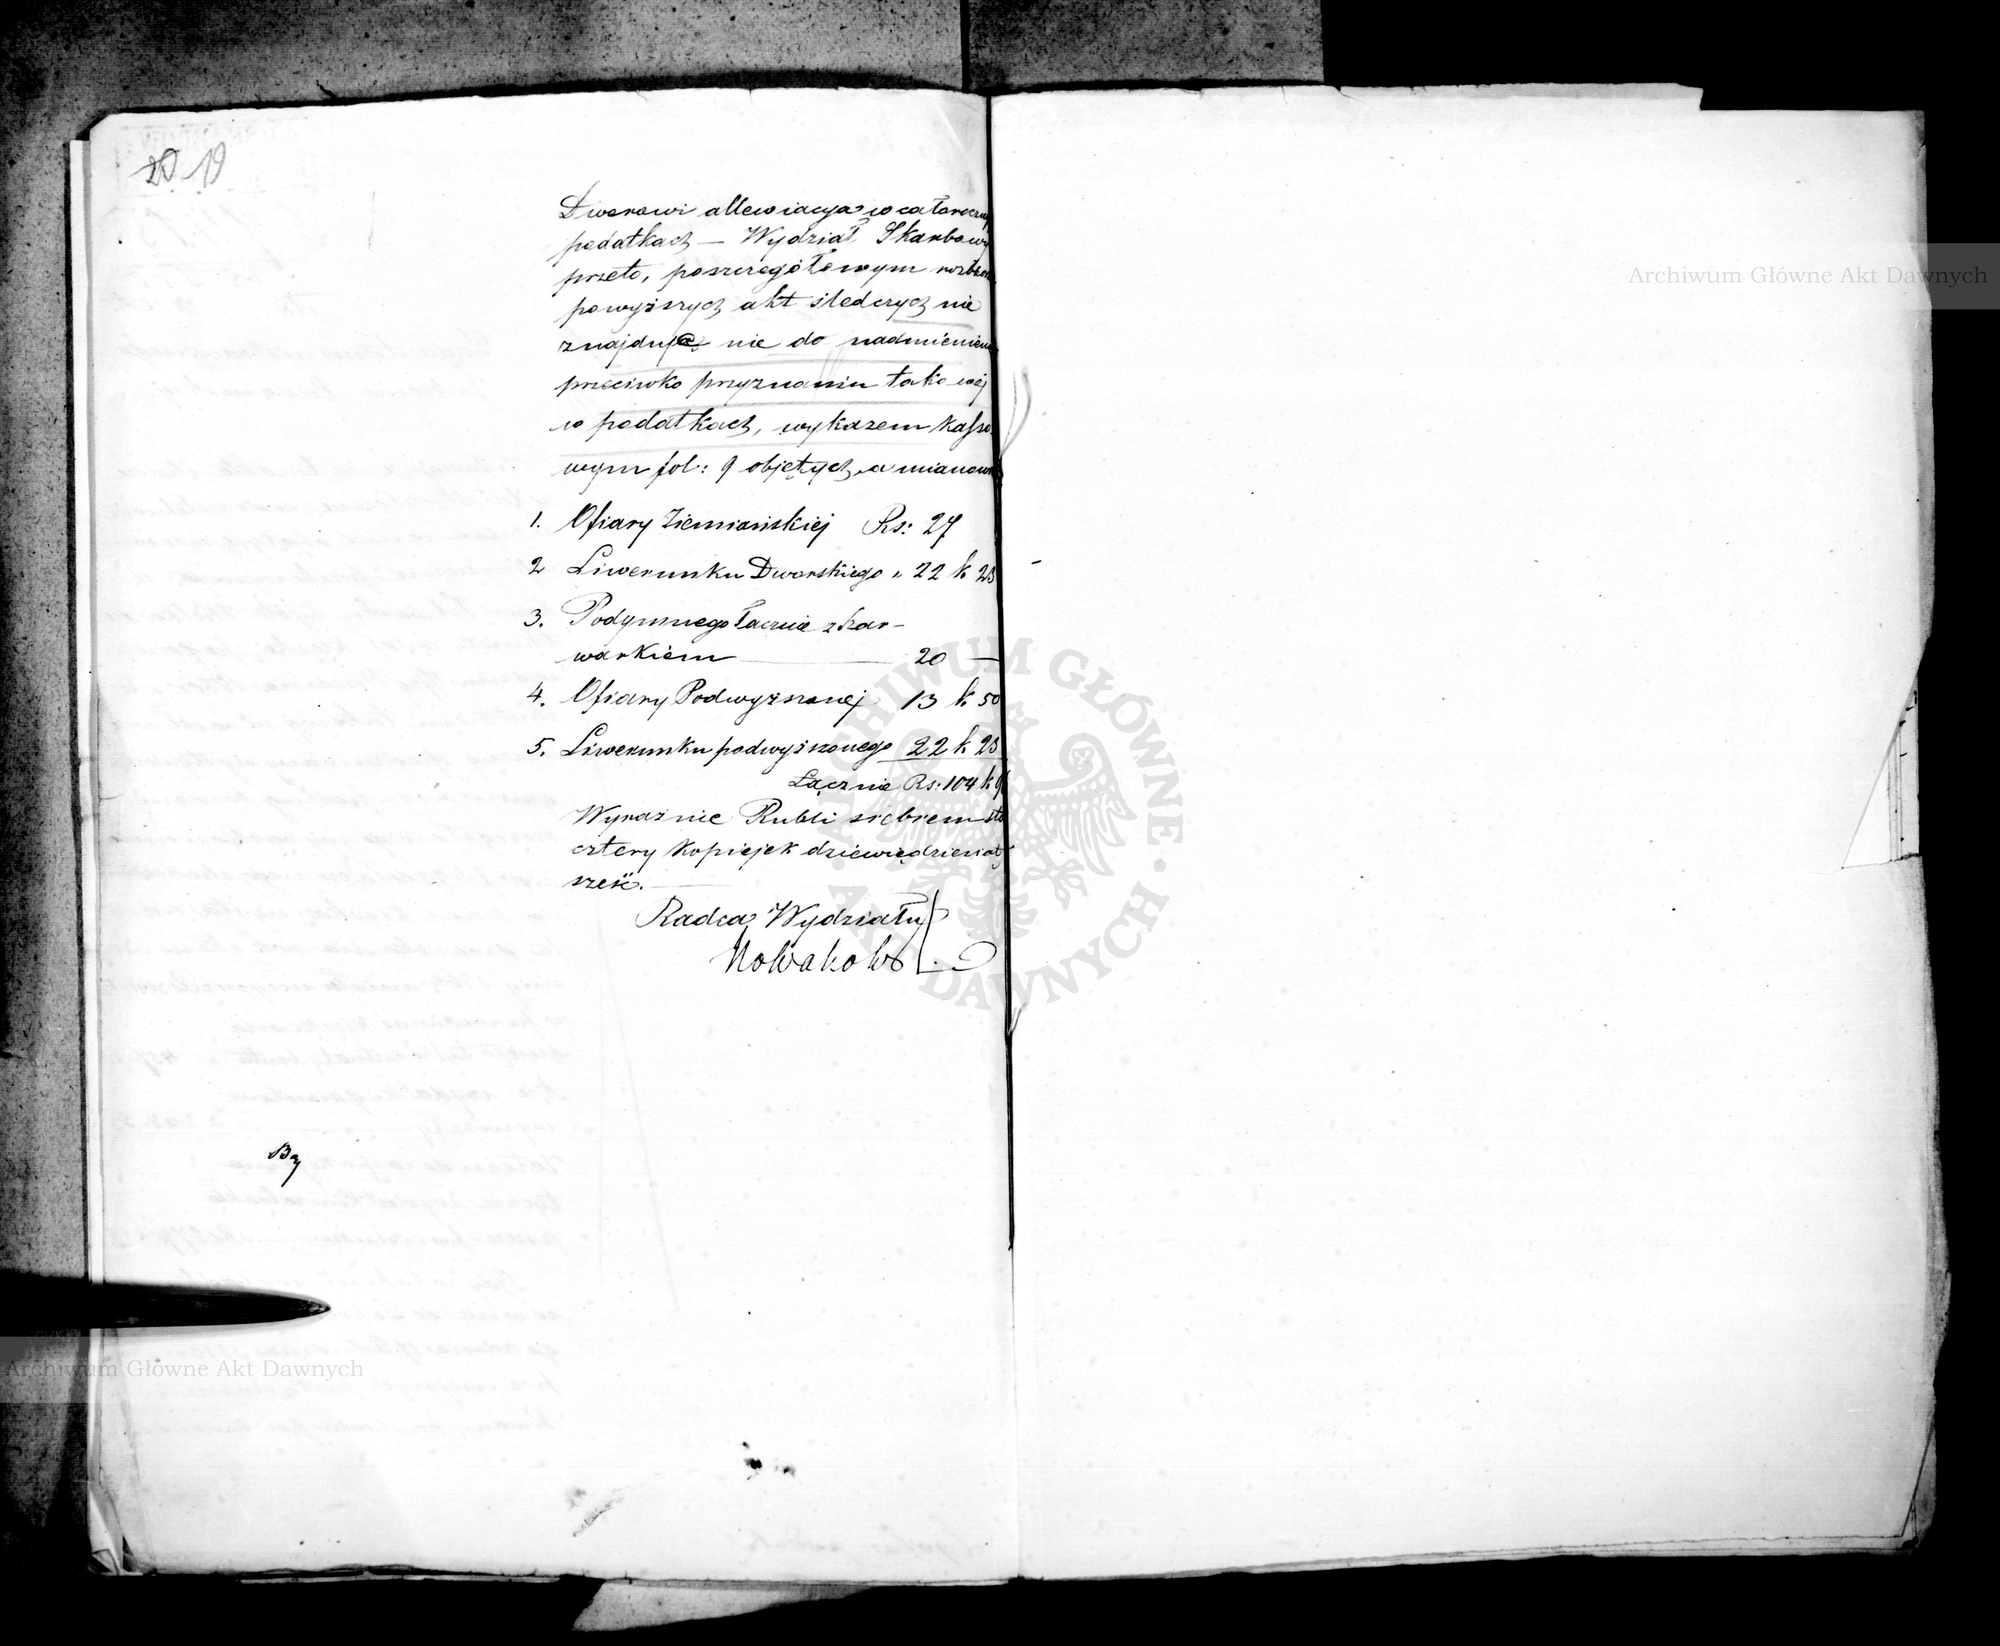 20 19
Dworowi allewiacya w całoroczny
podatkach — Wydział Skarbowy
przeto, poszczegółowym rozbiorem
powyższych akt śledczych nie
znajduje nic do nadmienienia
przeciwko przyznaniu takowej
w podatkach, wykazem Kasso-
wym fol: 9 objętych, a mianowi
1. Ofiary Ziemiańskiej Rs: 27
2 Liwerunku Dworskiego " 22 k 23
3. Podymnego łącznie z szar-
warkiem — 20 —
4. Ofiary Podwyższonej 13 k 50
5. Liwerunku podwyższonego 22 k 23
Łącznie Rs: 104 k 96
Wyraźnie Rubli srebrem sto
cztery Kopiejek dziewięćdziesiąt
sześć.
Radca Wydziału
Nowakows
Archiwum Główne Akt Dawnych
ARCHIWUM GŁÓWNE · AKT DAWNYCH ·
Archiwum Główne Akt Dawnych